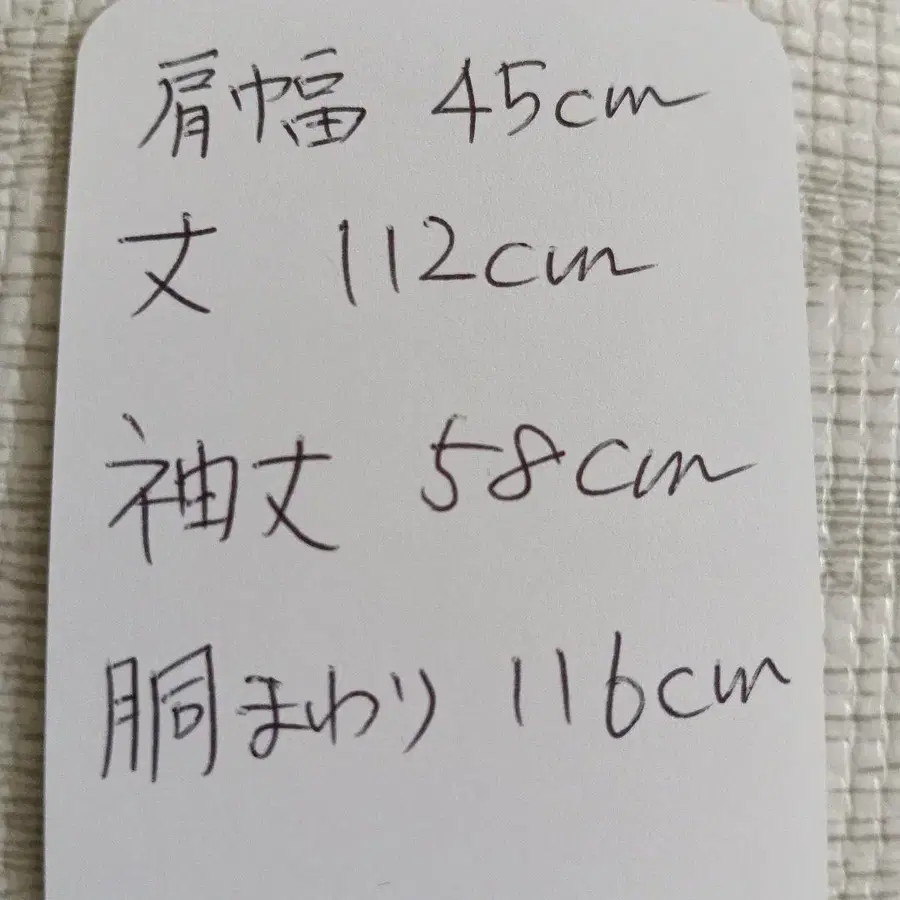 肩幅 45cm
丈 112cm
袖丈 58cm
胴まわり 116cm